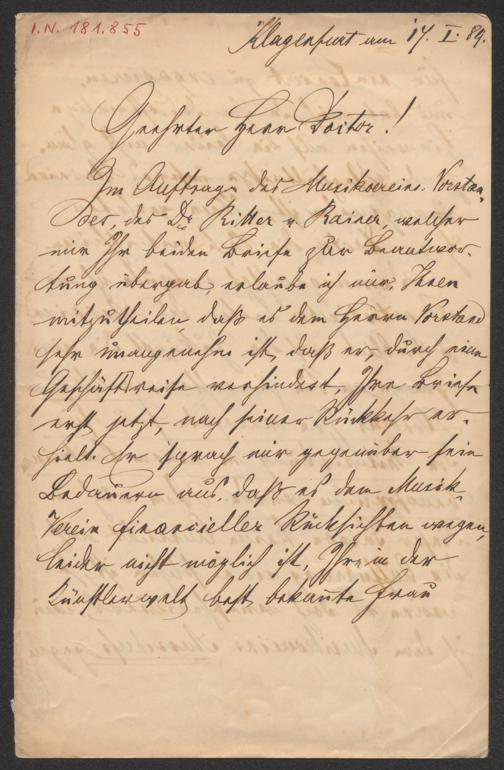 I.N. 181.855
Klagenfurt am 17. I. 89.
Geehrter Herr Doctor!
Im Auftrage des Musikvereins-Vorstan-
des, des Dr. Ritter v. Rainer, welcher
mir Ihr beiden Briefe zur Beantwor-
tung übergab, erlaube ich mir, Ihnen
mitzutheilen, daß es dem Herrn Vorstand
sehr unangenehm ist, daß er, durch eine
Geschäftsreise verhindert, Ihre Briefe
erst jetzt, nach seiner Rückkehr er-
hielt. Er sprach mir gegenüber sein
Bedauern aus, daß es dem Musik-
Verein financieller Rücksichten wegen,
leider nicht möglich ist, Ihre in der
Künstlerwelt best bekannte Frau